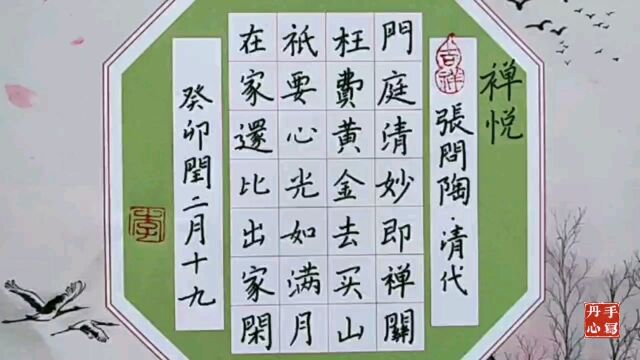 禅悦
吉祥
張問陶·清代
門庭清妙即禅關
枉費黄金去买山
祇要心光如满月
在家還比出家閑
癸卯閏二月十九
李
手寫
丹心